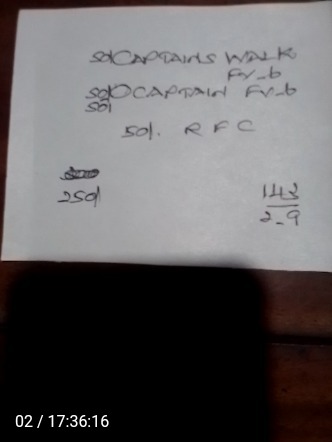 50/ CAPTAINS WALK
FV-b
50/ O CAPTAIN FV-b
50/
50/. R F C
250/
143
2-9
02 / 17:36:16